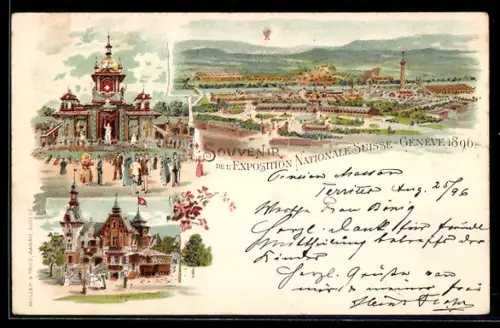 SOUVENIR
DE L'EXPOSITION NATIONALE SUISSE - GENÈVE 1896.
Pension Masson
Territet Aug. 25/96
Werthe Frau Bönig
Herzl. Dank für freundl
Mittheilung betreffs der
Kinder
Herzl. Grüße von
mir & meiner Frau
MÜLLER & TRÜB, AARAU